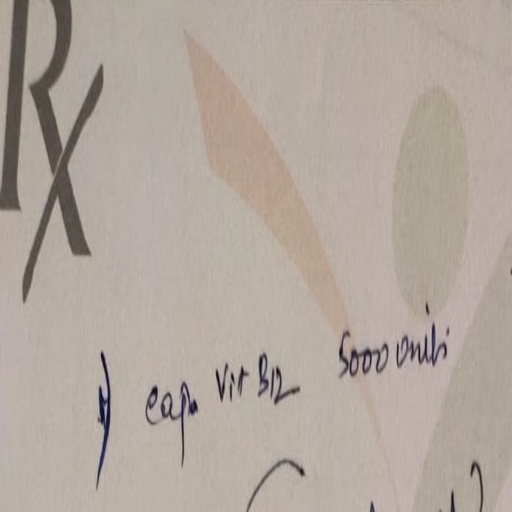 Rx
1) cap. Vit B12 5000 units